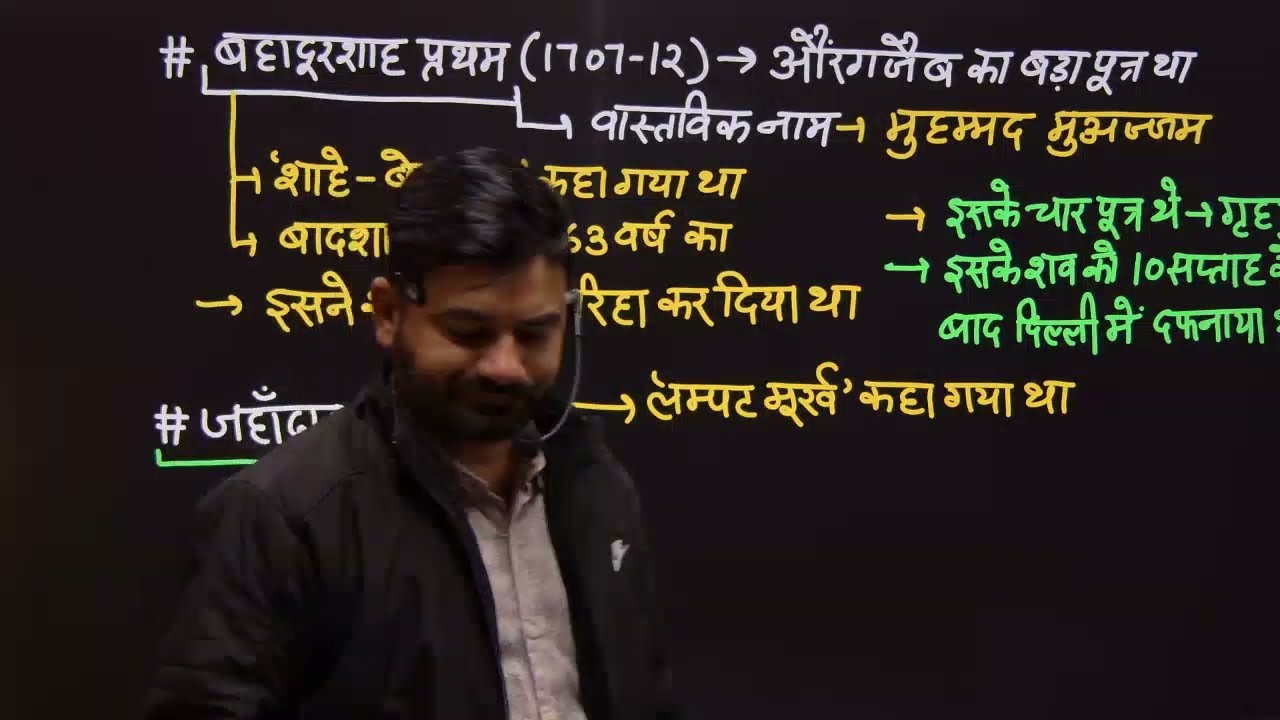 # बहादूरशाह प्रथम (1707-12) → औरंगजैब का बड़ा पूत्र था
→ वास्तविक नाम → मुहम्मद मुअज्जम
→ 'शाहे- कहा गया था
→ 63 वर्ष का
→ इसने रिहा कर दिया था
→ इसके चार पूत्र थे →
→ इसके शव को 10 सप्ताह
बाद दिल्ली में दफनाया
#
→ 'लम्पट मूर्ख' कहा गया था